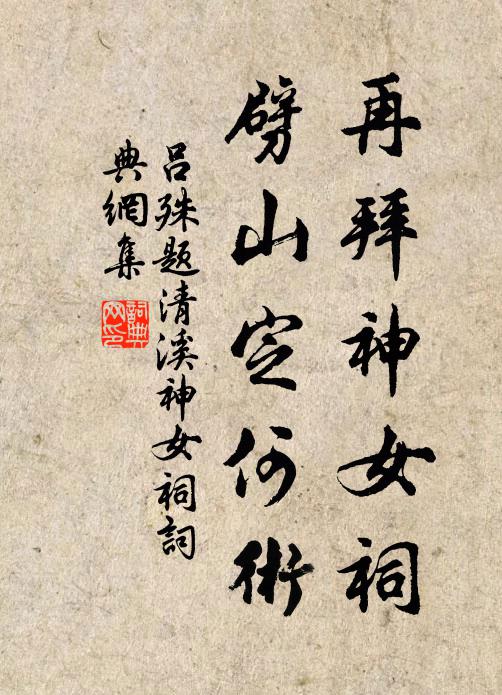 再拜神女祠
劈山定何術
呂殊题清溪神女祠詞
典網集
詞典
网印